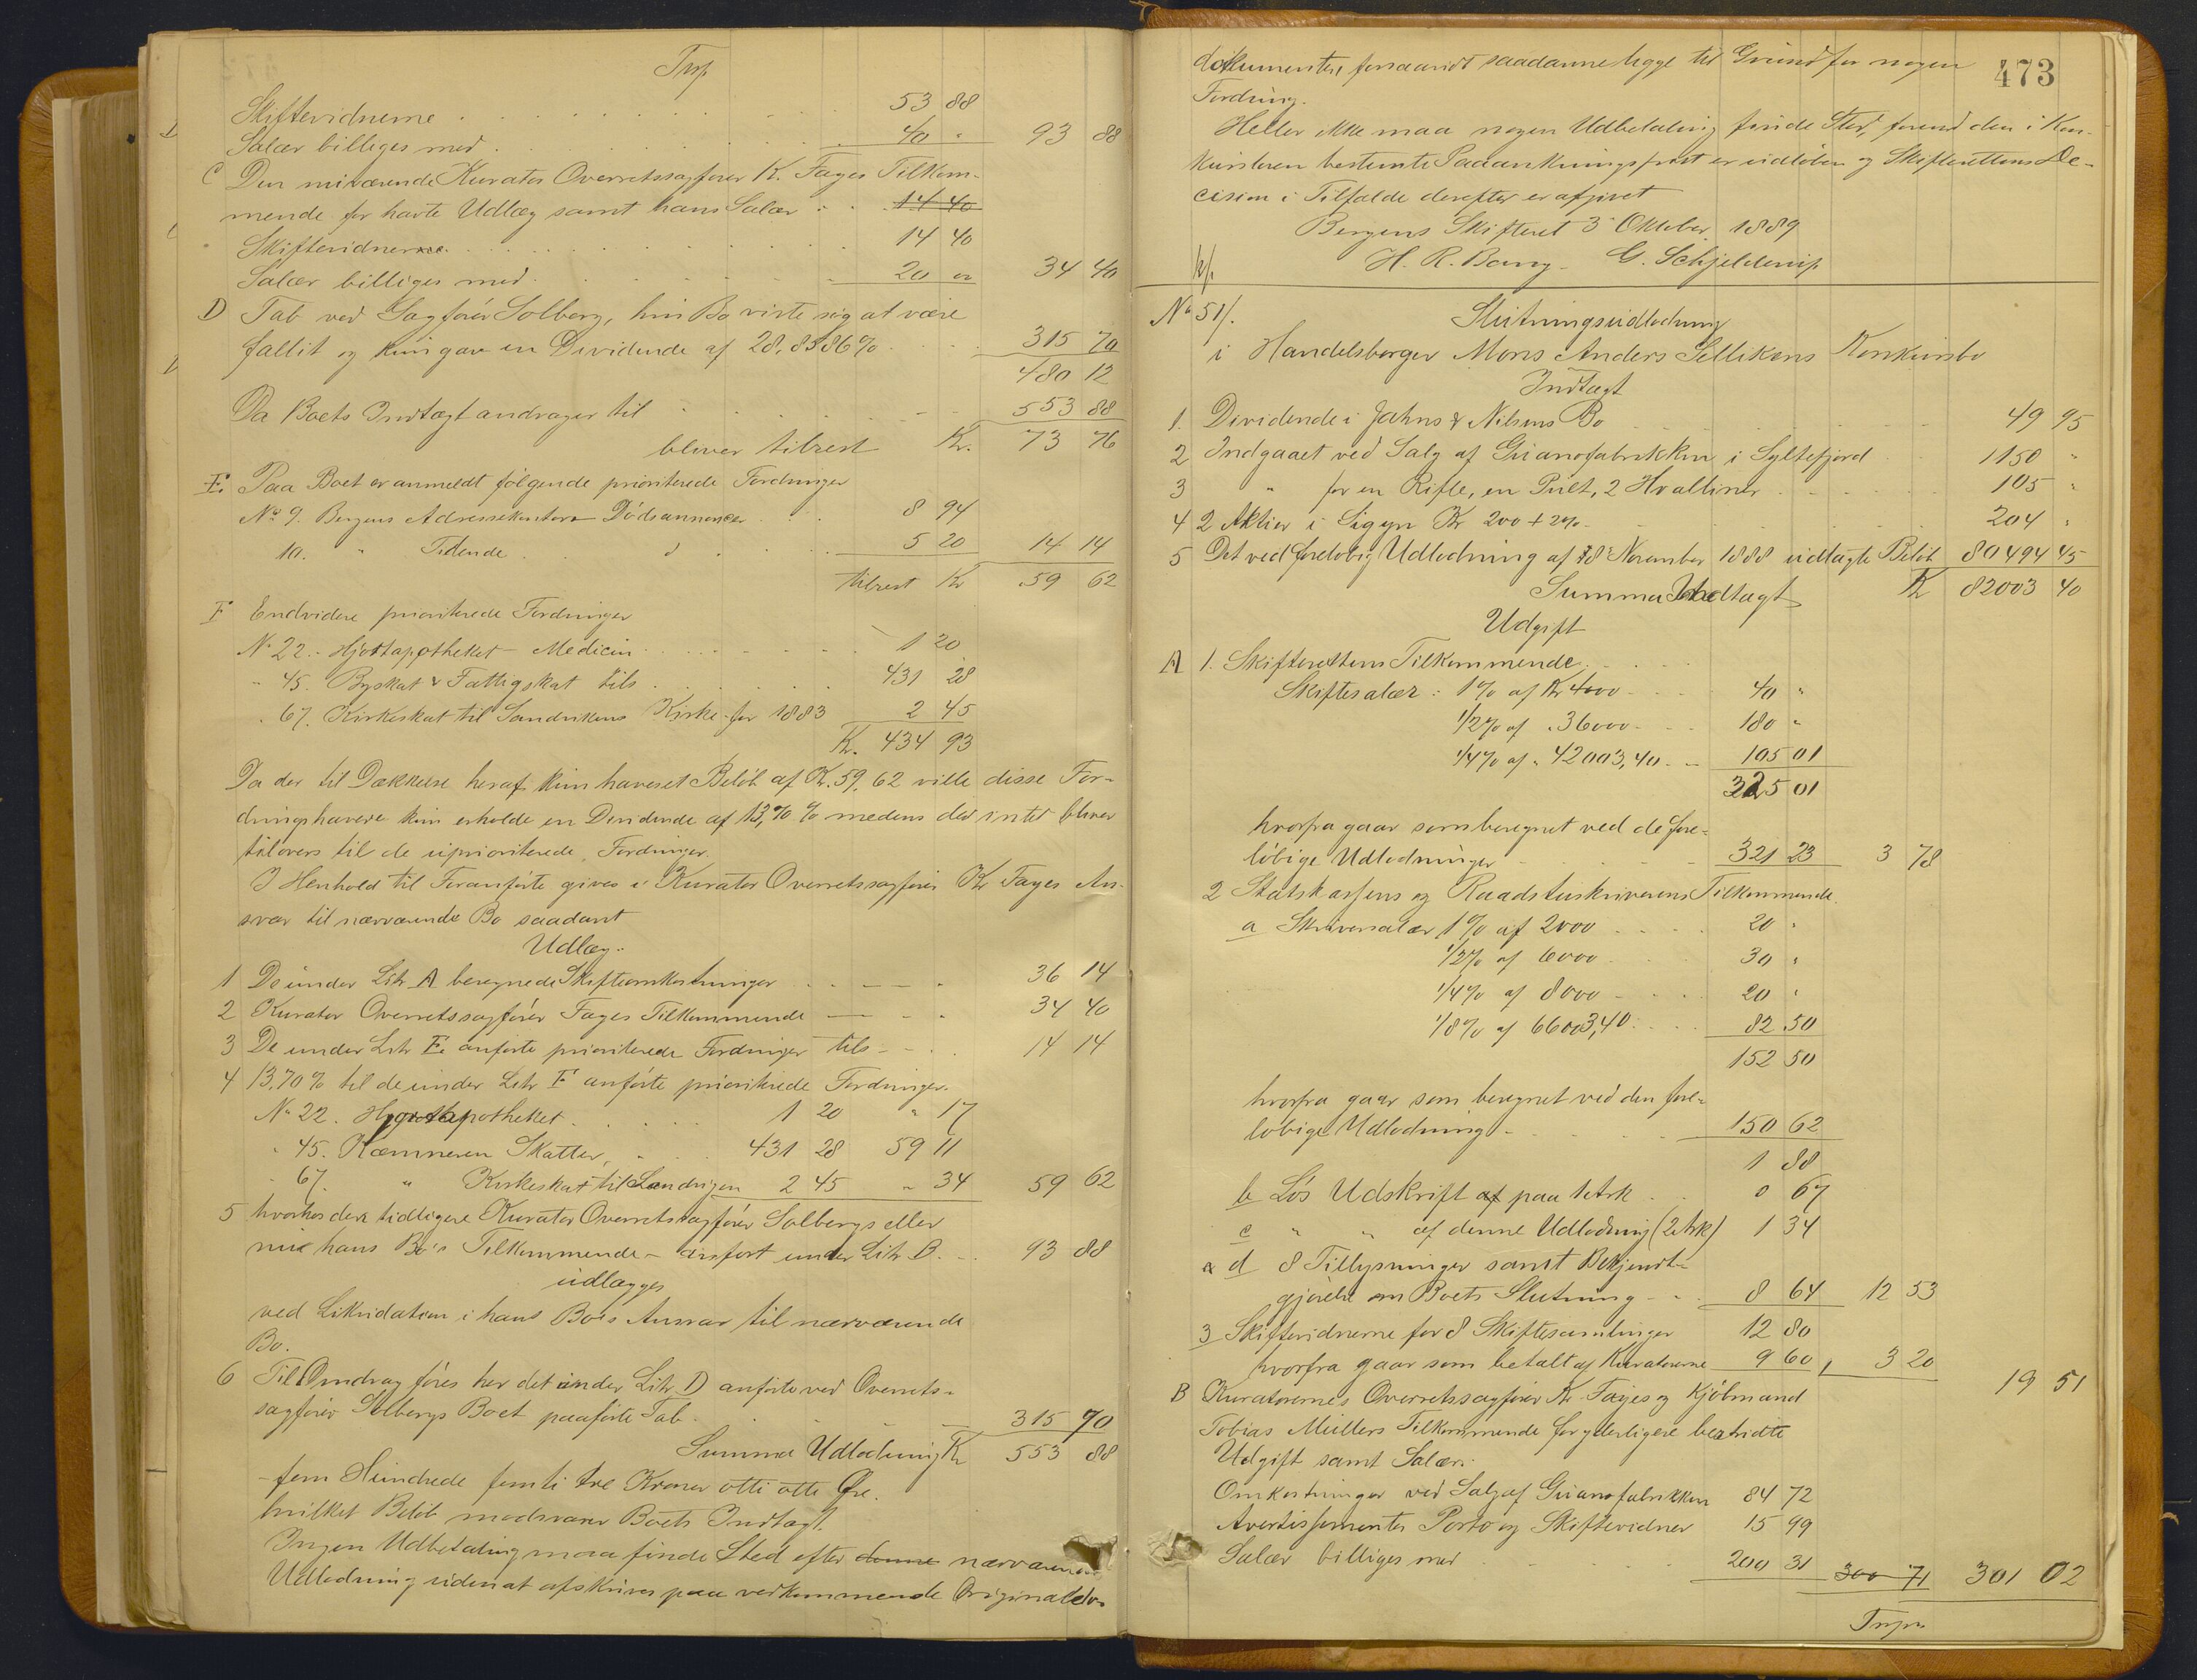 Trsp
Skiftevidnerne . . . 53 88
Salær billiges med . . . 40 " 93 88
C Den nuværende Kurator Overretssagfører K. Fayes Tilkom-
mende for havte Udlæg samt hans Salær : . . 14 40
Skiftevidnerne . . . 14 40
Salær billiges med . . . 20 " 34 40
D Tab ved Sagfører Solberg, hvis Bo viste sig at være
fallit og kun gav en Dividende af 28,8586% . . . 315 70
480 12
Da Boets Indtægt andrager til . . . 553 88
bliver tilrest Kr. 73 76
E. Paa Boet er anmeldt følgende prioriterede Fordringer
No 9. Bergens Adressekontors Dødsannoncer . . . 8 94
10. " Tidende . d . . . 5 20 14 14
tilrest Kr 59 62
F Endvidere prioriterede Fordringer
No 22. Hjortapotheket - Medicin . . . 1 20
" 45. Byskat & Fattigskat tils . . . 431 28
" 67. Kirkeskat til Sandvikens Kirke for 1883 2 45
Kr. 434 93
Da der til Dækkelse heraf kun haves et Beløb af Kr. 59,62 ville disse For-
dringshavere kun erholde en Dividende af 13,70 % medens der intet bliver
tilovers til de uprioriterede Fordringer.
I Henhold til Foranførte gives i Kurator Overretssagfører Kr Fayes An-
svar til nærværende Bo saadant
Udlæg.
1 De under Litr A beregnede Skifteomkostninger . . . 36 14
2 Kurator Overretssagfører Fayes Tilkommende . . . 34 40
3 De under Litr E. anførte prioriterede Fordringer tils . . 14 14
4 13,70% til de under Litr F anførte prioriterede Fordringer.
No 22. Hjortapotheket . . . 1 20 " 17
" 45. Kæmneren Skatter, . . . 431 28 59 11
" 67. " Kirkeskat til Sandvigen 2 45 " 34 59 62
5 hvorhos den tidligere Kurator Overretssagfører Solbergs eller
nu hans Bo's Tilkommende - anført under Litr B. . . 93 88
udlægges
ved Likvidation i hans Boes Ansvar til nærværende
Bo.
6 Til Omdrag føres her det under Litr D anførte ved Overrets-
sagfører Solbergs Boet paaførte Tab . . . 315 70
Summa Udlodning Kr 553 88
- fem Hundrede femti tre Kroner otti otte Øre.
hvilket Beløb modsvarer Boets Indtægt.
Ingen Udbetaling maa finde Sted efter denne nærværen
Udlodning uden at afskrives paa vedkommende Originaldo-
473
dokumenter forsaavidt saadanne ligge til Grund for nogen
Fordring.
Heller ikke maa nogen Udbetaling finde Sted, førend den i Kon-
kursloven bestemte Paaankningsfrist er udløben og Skifterettens De-
cision i Tilfælde derefter er afgivet
Bergens Skifteret 3' Oktober 1889
H. R. Bang - G. Schjelderup
No 51/.
Slutningsudlodning
i Handelsborger Mons Anders Sellikens Konkursbo
Indtægt
1. Dividende i Jahns & Nilsens Bo . . . 49 95
2 Indgaaet ved Salg af Guanofabrikken i Syltefjord . . 1150 "
3 " for en Rifle, en Pult, 2 Hvalliner . . . 105 "
4 2 Aktier i Sigyn Kr 200 + 2% . . . 204 "
5 Det ved foreløbig Udlodning af 18' November 1888 udlagte Beløb 80494 45
Summa Indtægt Kr 82003 40
Udgift
A 1. Skifterettens Tilkommende . . .
Skiftesalær : 1% af Kr 4000 . . . 40 "
1/2% af " 36000 . . . 180 "
1/4% af " 42003,40 . . 105 01
325 01
hvorfra gaar som beregnet ved de fore-
løbige Udlodninger . . . 321 23 3 78
2 Statskassens og Raadstuskriverens Tilkommende.
a Skriversalær 1% af 2000 . . . 20 "
1/2% af 6000 . . . 30 "
1/4% af 8000 . . . 20 "
1/8% af 66003,40 . . . 82 50
152 50
hvorfra gaar som beregnet ved den fore-
løbige Udlodning . . . 150 62
1 88
b Løs Udskrift af paa 1 Ark . . 0 67
c " " af denne Udlodning (2 Ark) 1 34
d 8 Tillysninger samt Bekjendt-
gjørelse om Boets Slutning . . . 8 64 12 53
3 Skiftevidnerne for 8 Skiftesamlinger 12 80
hvorfra gaar som betalt af Kuratorerne 9 60 3 20
19 51
B Kuratorerne's Overretssagfører Kr. Fayes og Kjøbmand
Tobias Müllers Tilkommende for yderligere bestridte
Udgift samt Salær:
Omkostninger ved Salg af Guanofabrikken 84 72
Avertissementer Porto og Skiftevidner 15 99
Salær billiges med . . . 200 31 300 71 301 02
Trsp